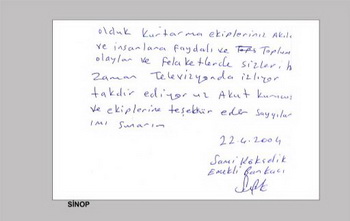 olduk kurtarma ekipleriniz Akıllı
ve insanlara faydalı ve Toplum
olaylar ve felaketlerde sizleri h
zaman Televizyonda izliyor
takdir ediyoruz Akut kurucusu
ve ekiplerine teşekkür eder saygılar
ımı sunarım
22.4.2004
Sami
Emekli Bankacı
SİNOP